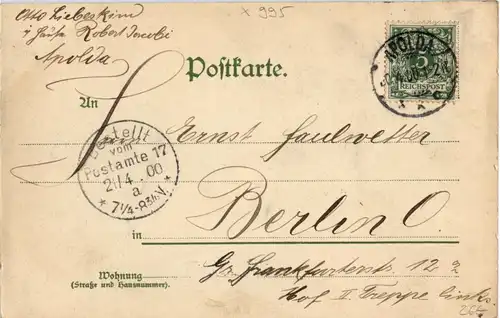 Otto Liebeskind
i/Hause Robert Jacobi
Apolda
x 995
Postkarte.
APOLDA
1-2N
5
REICHSPOST
An
Ernst Faulwetter
Bestellt
vom
Postamte 17
21/4. 00
a
7¼-8¾V.
in
Berlin O.
Wohnung
(Straße und Hausnummer).
Gr. Frankfurterstr. 12
Hof II Treppe links